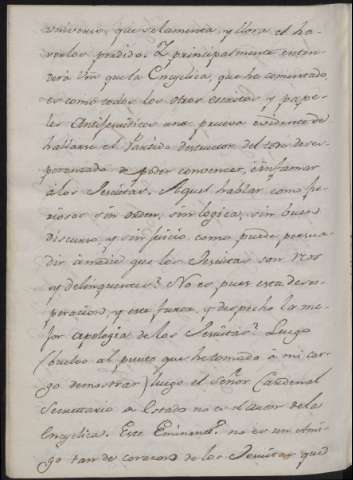 universo, que se lamenta, y llora el ha-
verlos perdido. Y principalmente enten-
derá Vm que la Encyclica, que he comentado,
es como todos los otros escritos y pape-
les Antijesuiticos una prueva evidente de
hallarse el Partido destructor del todo deses-
peranzado de poder convencer, è infamar
à los Jesuitas. Aquel hablar como fu-
riosos sin orden, sin logica, sin buen
discurso, y sin juicio como puede persua-
dir à nadie que los Jesuitas son reos
y delinquentes? No es pues esta deses-
peracion, y esta furia, y despecho la me-
jor apologia de los Jesuitas? Luego
(buelvo al punto que he tomado à mi car-
go demostrar) luego el Señor Cardenal
Secretario de Estado no es el autor de la
Encyclica. Este Eminent.º no es un Ami-
go tan de corazon de los Jesuitas que